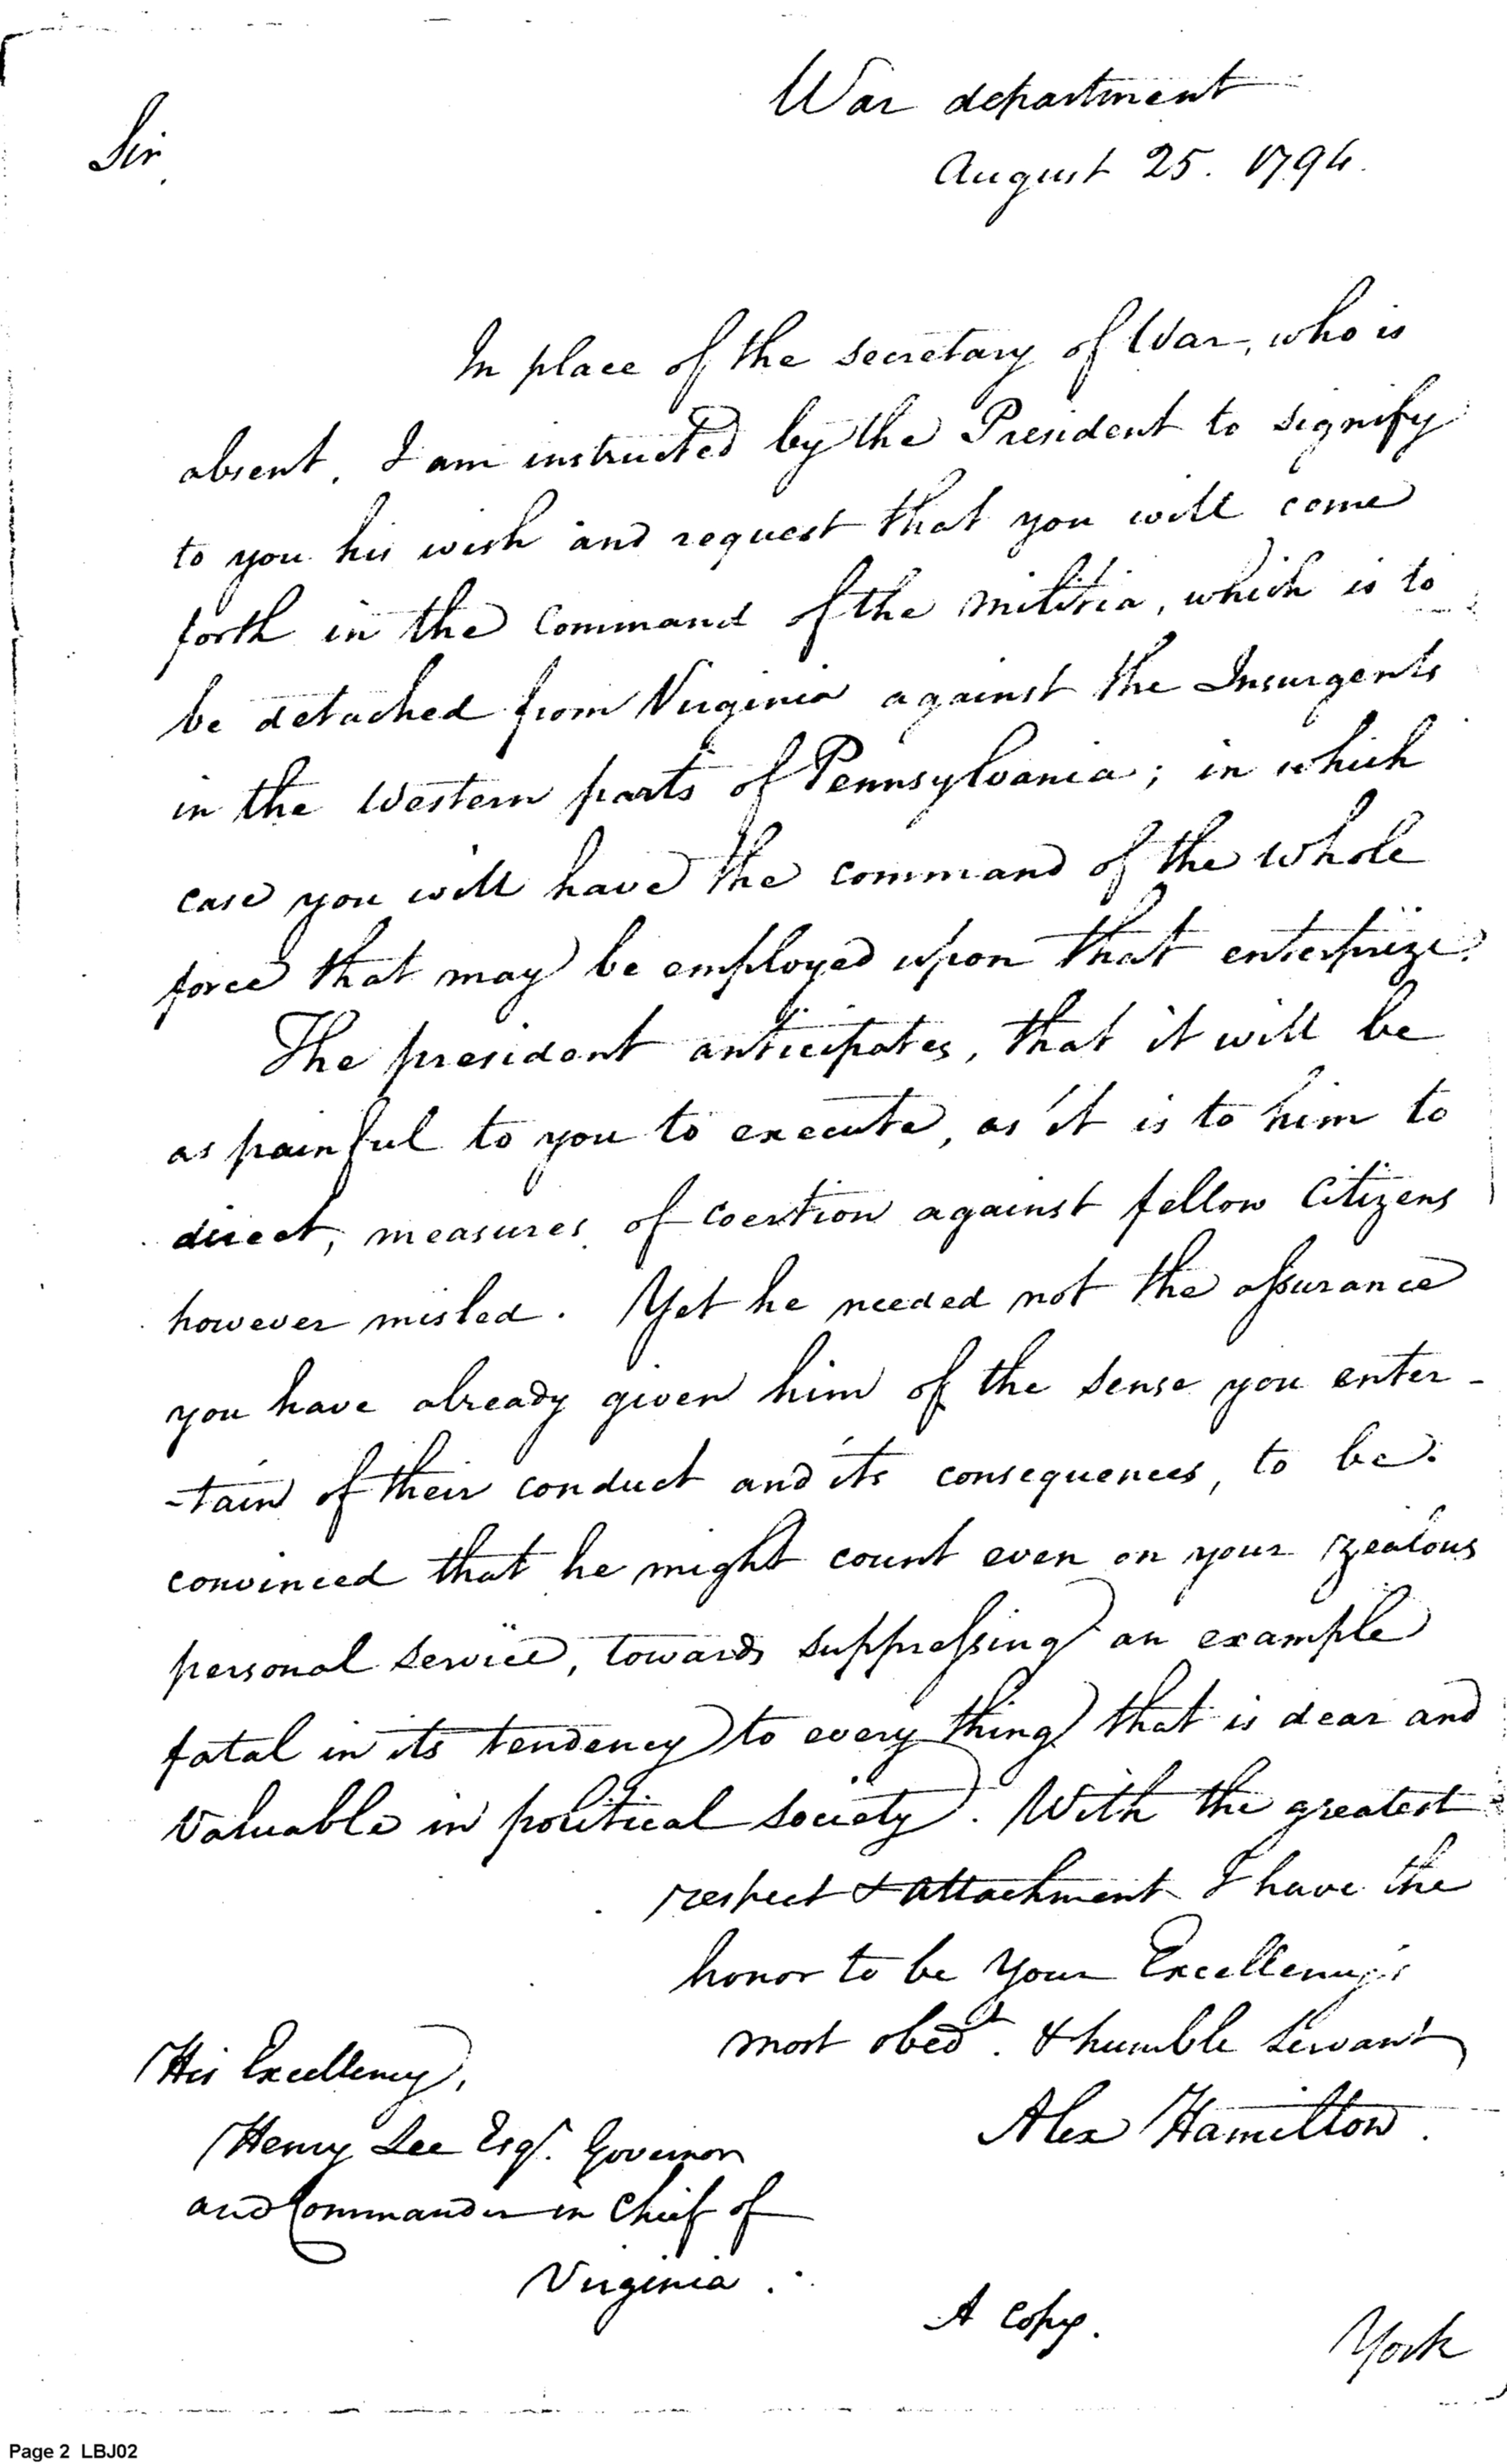 War department
Sir
August 25. 1794.
In place of the secretary of War, who is
absent, I am instructed by the President to signify
to you his wish and request that you will come
forth in the Command of the militia, which is to
be detached from Virginia against the Insurgents
in the Western parts of Pennsylvania; in which
case you will have the command of the whole
force that may be employed upon that enterprize.
The president anticipates, that it will be
as painful to you to execute, as it is to him to
direct, measures of coertion against fellow Citizens
however misled. Yet he needed not the assurance
you have already given him of the sense you enter-
-tain of their conduct and its consequences, to be
convinced that he might count even on your zealous
personal service, towards suppressing an example
fatal in its tendency to every thing that is dear and
Valuable in political society. With the greatest
respect & attachment I have the
honor to be Your Excellency's
most obedt. & humble Servant
Alex Hamilton.
His Excellency,
Henry Lee Esqr. Governor
and Commander in Chief of
Virginia.
A Copy.
York
Page 2 LBJ02